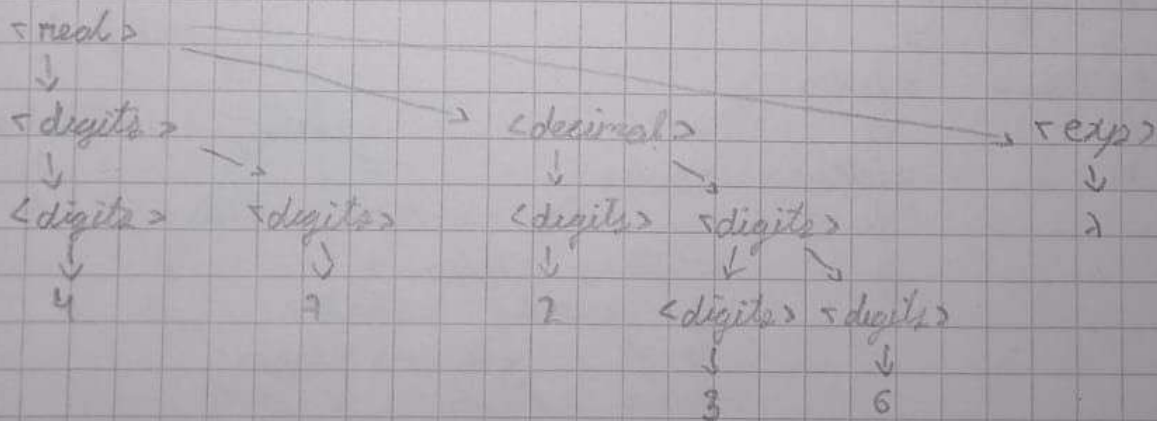 <real>
<digits> <decimal> <exp>
<digits> <digits> <digits> <digits> λ
4 7 2 <digits> <digits>
3 6